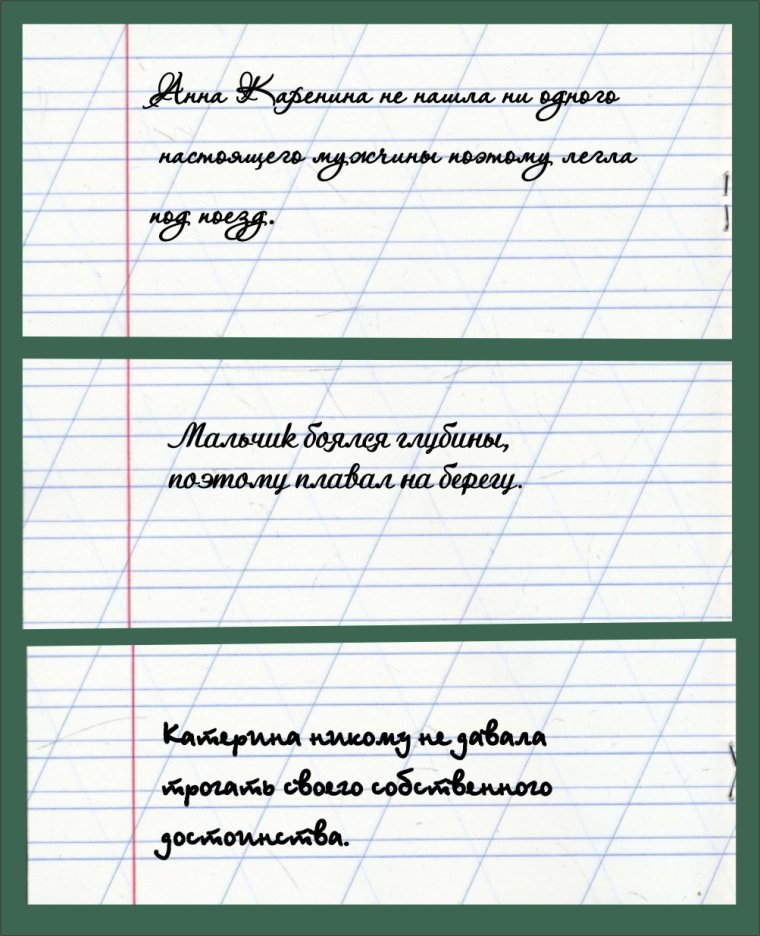 Анна Каренина не нашла ни одного
настоящего мужчины поэтому легла
под поезд.
Мальчик боялся глубины,
поэтому плавал на берегу.
Катерина никому не давала
трогать своего собственного
достоинства.